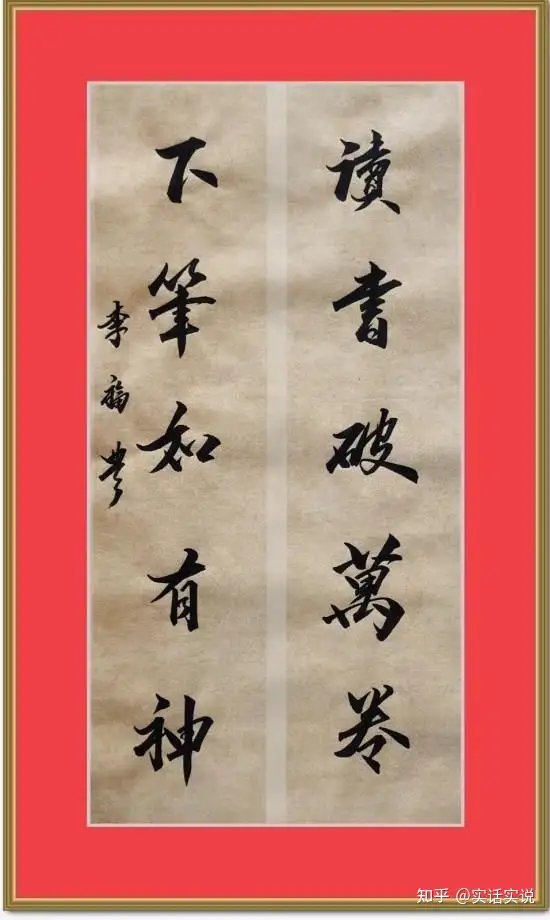 讀書破萬卷
下筆如有神
李福豊
知乎 @实话实说